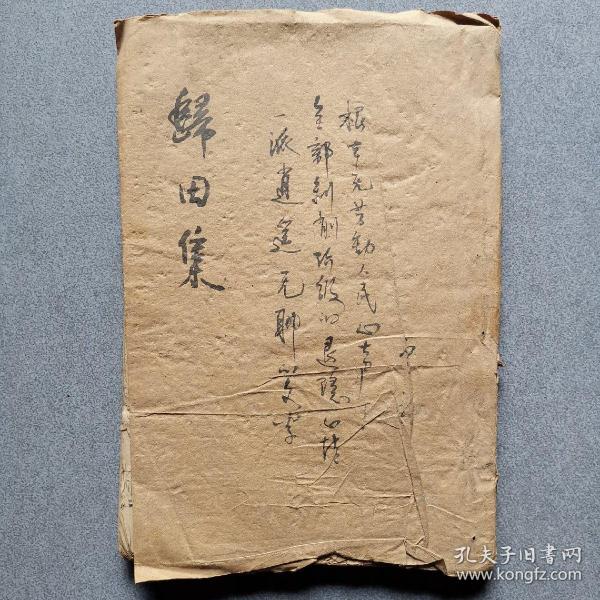 根本无劳動人民心声
全部剥削阶级的退隐心情
一派逍遥无聊文学
歸田集
孔夫子旧书网
www.kongfz.com